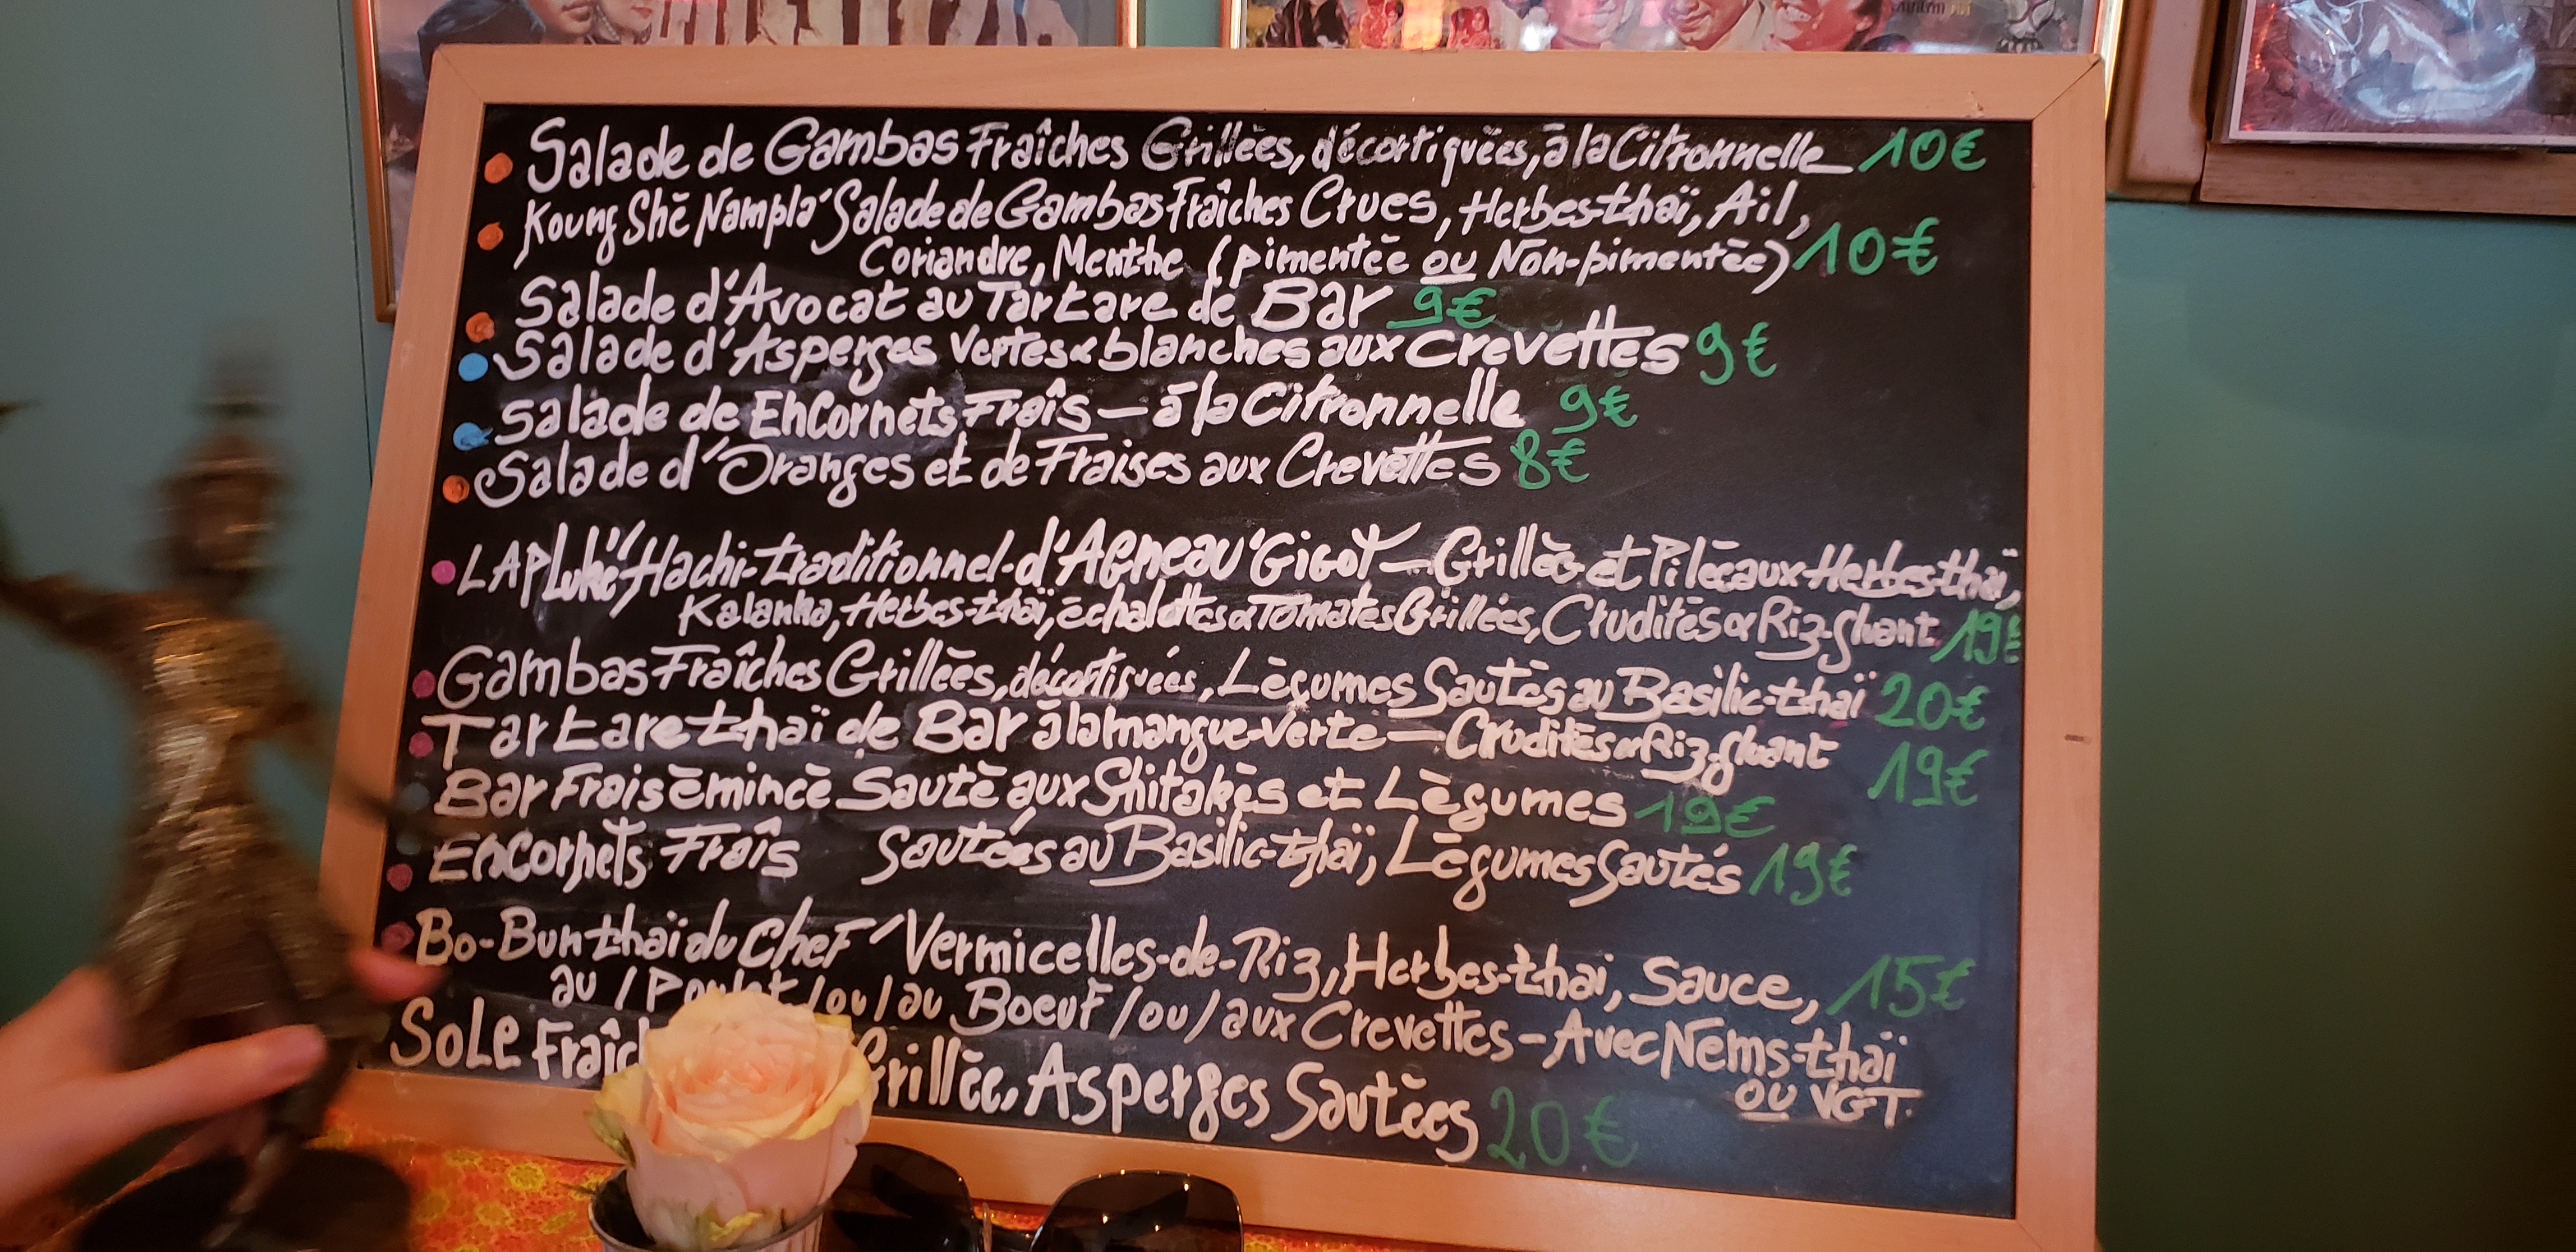 Salade de Gambas Fraîches Grillées, décortiquées, à la Citronnelle 10€
Koung Shé Nampla' Salade de Gambas Fraîches Crues, Herbes-thaï, Ail,
Coriandre, Menthe (pimentée ou Non-pimentée) 10€
Salade d'Avocat au Tartare de Bar 9€
Salade d'Asperges Vertes & blanches aux Crevettes 9€
Salade de Encornets Fraîs — à la Citronnelle 9€
Salade d'Oranges et de Fraises aux Crevettes 8€
LAP Luké" Hachi-traditionnel-d'Agneau'Gigot — Grillée et Pilée aux Herbes-thaï,
Kalanha, Herbes-thaï, échalottes & Tomates Grillées, Crudités & Riz-gluant 19€
Gambas Fraîches Grillées, décortiquées, Légumes Sautés au Basilic-thaï 20€
Tartare-thaï de Bar à la mangue-verte — Crudités & Riz-gluant 19€
Bar Frais émincé Sauté aux Shitakés et Légumes 19€
Encornets Fraîs Sautées au Basilic-thaï, Légumes Sautés 19€
Bo-Bun thaï du Chef' Vermicelles-de-Riz, Herbes-thaï, Sauce, 15€
au / Poulet / ou / au Boeuf / ou / aux Crevettes - Avec Nems-thaï
ou VGT.
Sole Grillée, Asperges Sautées 20€